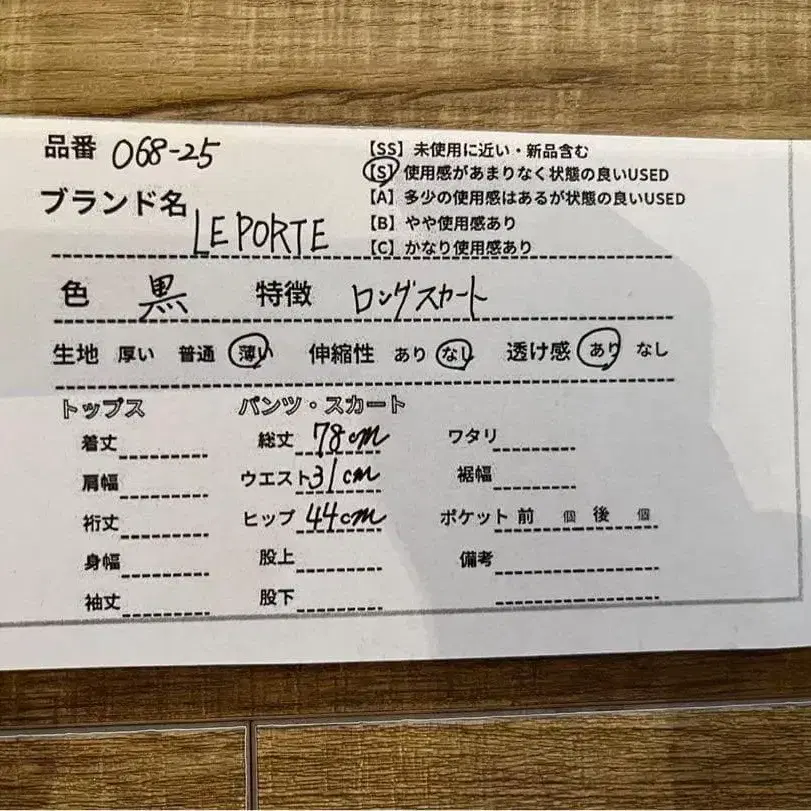 品番 068-25
【SS】未使用に近い・新品含む
【S】使用感があまりなく状態の良いUSED
【A】多少の使用感はあるが状態の良いUSED
【B】やや使用感あり
【C】かなり使用感あり
ブランド名 LE PORTE
色 黒 特徴 ロングスカート
生地 厚い 普通 薄い 伸縮性 あり なし 透け感 あり なし
トップス パンツ・スカート
着丈 総丈 78cm ワタリ
肩幅 ウエスト 31cm 裾幅
裄丈 ヒップ 44cm ポケット 前 個 後 個
身幅 股上 備考
袖丈 股下